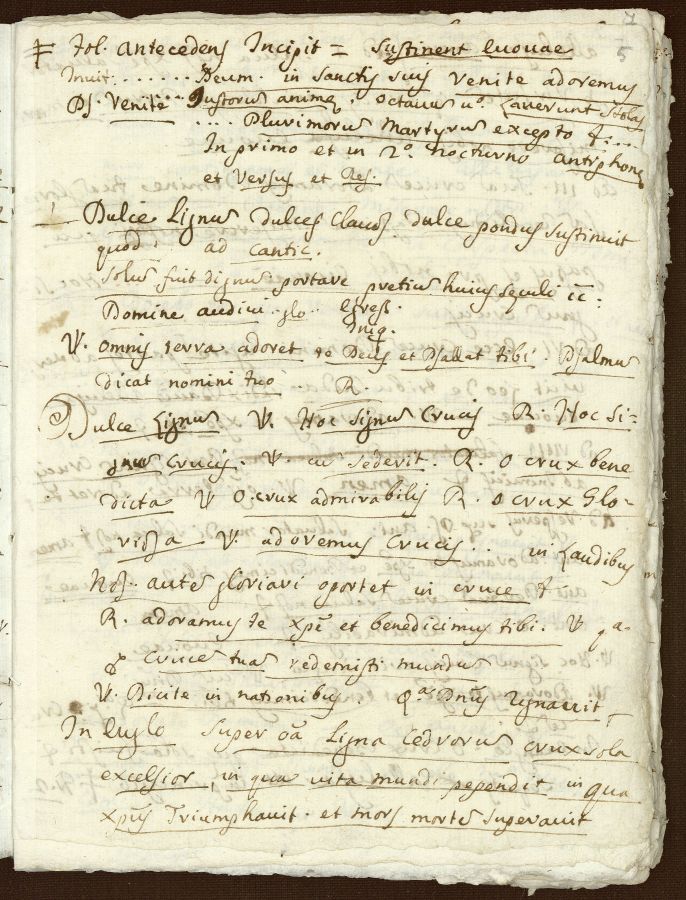 7
5
Fol. antecedens Incipit = Sustinent euouae
Inuit. ...... Deum. in sanctis suis venite adoremus
Ps. Venite Iustorum animæ. octauus uº. Lauerunt stolas
.... Plurimorum Martyrum excepto
In primo et in 2º. nocturno antiphone
et Versus et Res.
Dulce Lignum dulces clauos dulce pondus sustinuit
quod. ad cantic.
solum fuit dignum portare pretium huius seculi
Domine audiui. glo. egress.
Inig.
V. omnis terra adoret te Deus et Psallat tibi Psalmum
dicat nomini tuo R.
Dulce Lignum V. Hoc signum Crucis R. Hoc si-
gnum Crucis. V. cum sederit. R. o crux bene
dicta V o. crux admirabilis R. o crux Glo-
riosa V. adoremus Crucis.. in Laudibus
Nos. autem gloriari oportet in cruce
R. adoramus te xpē et benedicimus tibi. V q a-
Crucem tuam redemisti mundum
V. Dicite in nationibus. Dñus regnauit
In Euglo super oā Ligna Cedrorum crux sola
excelsior, in qua uita mundi pependit in qua
xpūs Triumphauit. et mors mortem superauit